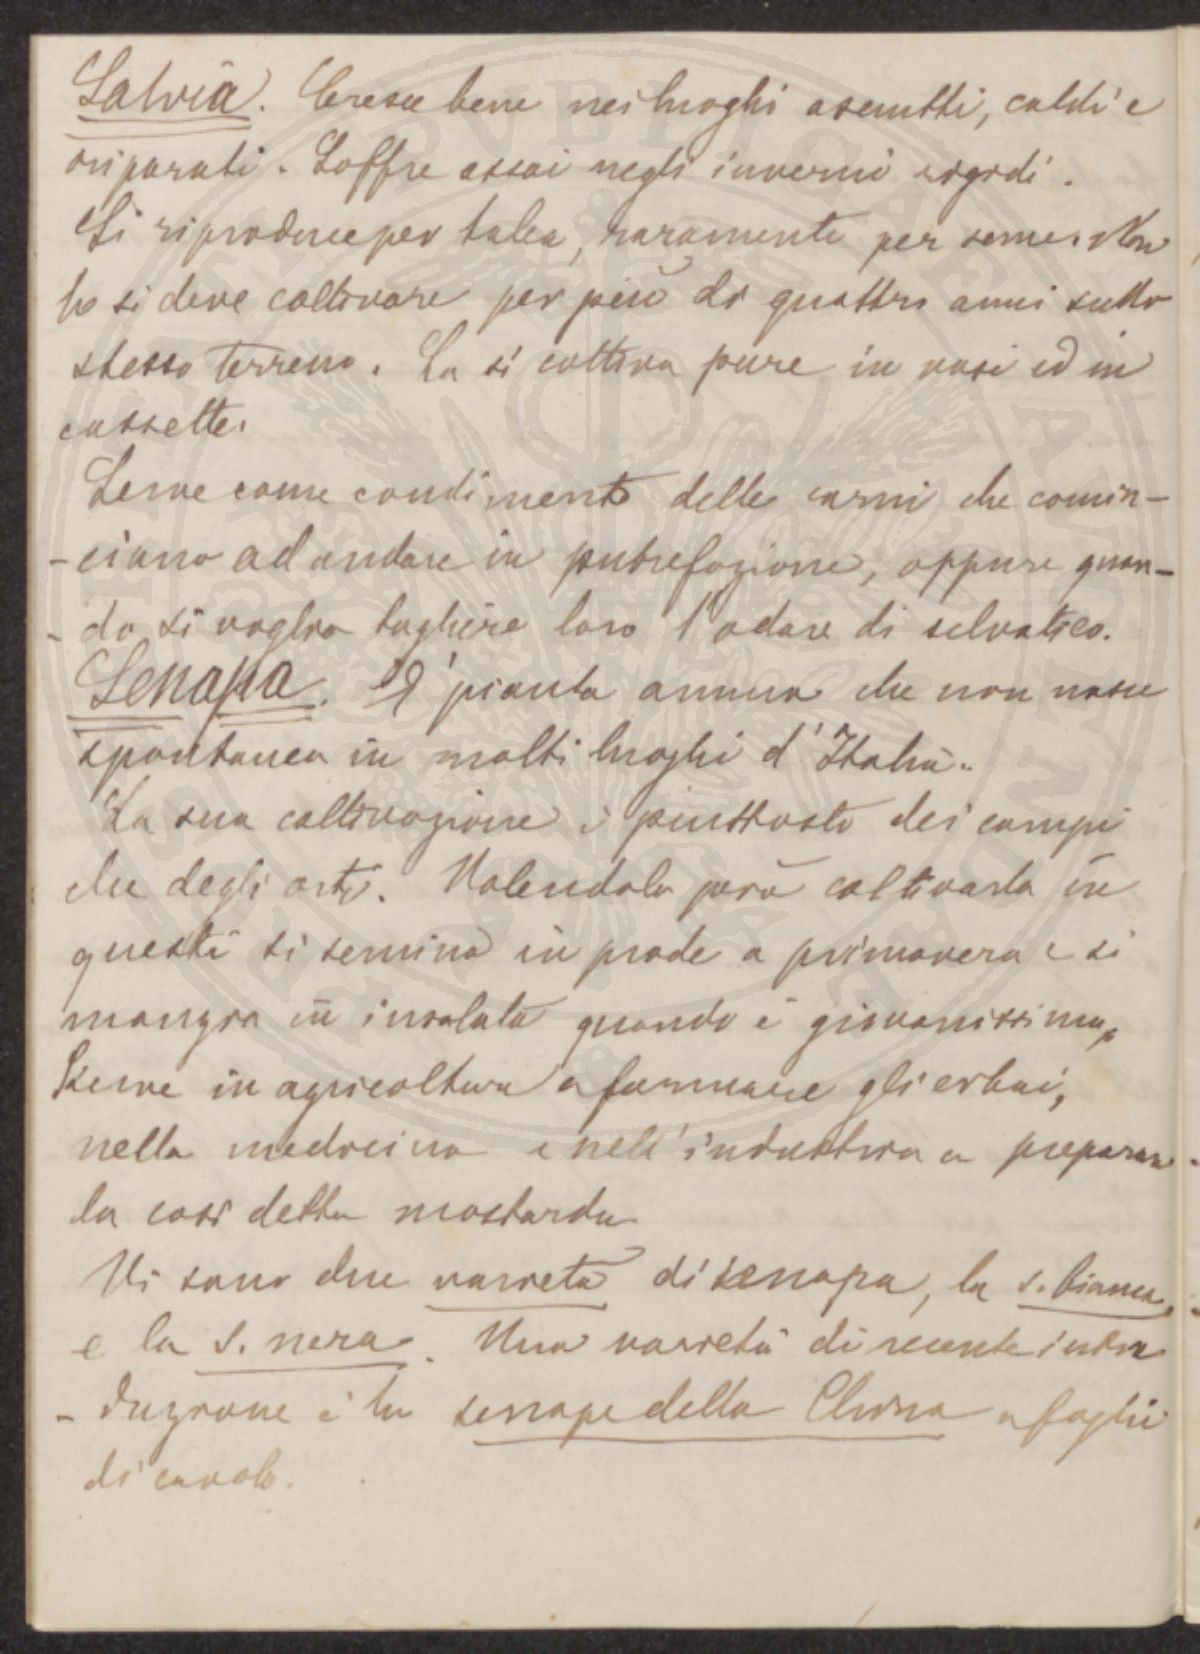 Salvia. Cresce bene nei luoghi asciutti, caldi e
riparati. Soffre assai negli inverni rigidi.
Si riproduce per talea, raramente per seme. Non
la si deve coltivare per più di quattro anni sullo
stesso terreno. La si coltiva pure in vasi ed in
cassette.
Serve come condimento delle carni che comin-
-ciano ad andare in putrefazione, oppure quan-
-do si voglia togliere loro l'odore di selvatico.
Senapa. E' pianta annua che non nasce
spontanea in molti luoghi d'Italia.
La sua coltivazione è piuttosto dei campi
che degli orti. Volendola però coltivarla in
questi si semina in prode a primavera e si
mangia in insalata quando è giovanissima,
Serve in agricoltura a formare gli erbai,
nella medicina e nell'industria a preparare
la così detta mostarda
Vi sono due varietà di senapa, la s. bianca,
e la s. nera. Una varietà di recente intro
-duzione è la senape della China a foglie
di cavolo.